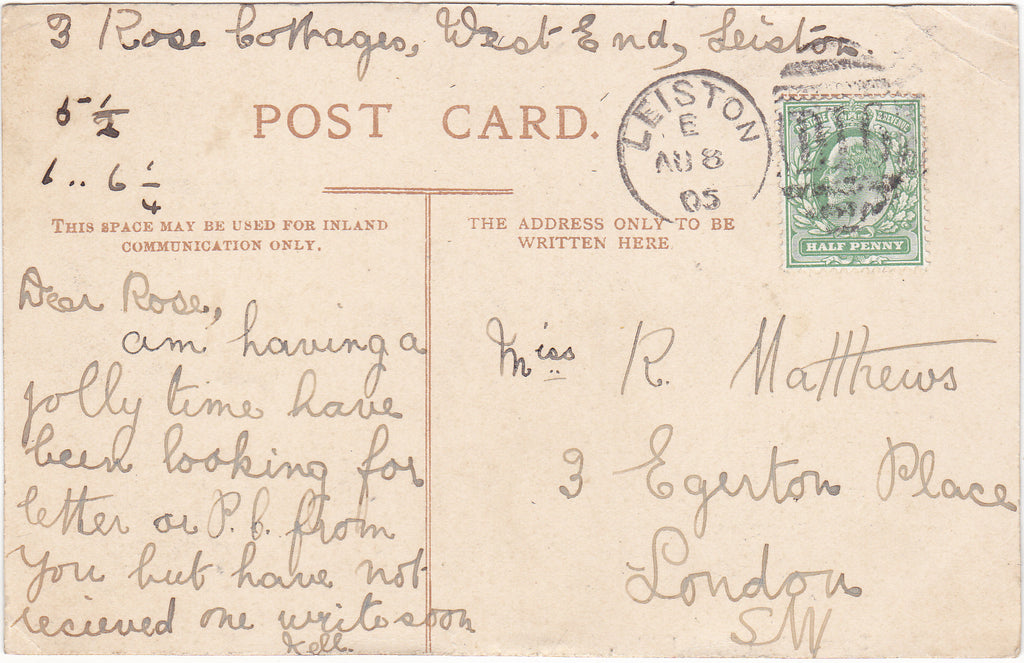 3 Rose Cottages, West End, Leiston.
5 1/2
1 .. 6 1/4
POST CARD.
LEISTON
E
AU 8
05
HALF PENNY
THIS SPACE MAY BE USED FOR INLAND
COMMUNICATION ONLY.
THE ADDRESS ONLY TO BE
WRITTEN HERE
Dear Rose,
am having a
jolly time have
been looking for
letter or P.C. from
You but have not
recieved one write soon
Nell.
Miss R. Matthews
3 Egerton Place
London
SW